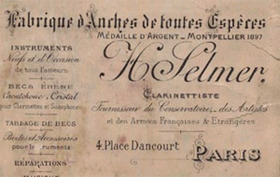 Fabrique d'Anches de toutes Espèces
MÉDAILLE D'ARGENT - MONTPELLIER 1897
INSTRUMENTS
Neufs et d'Occasion
de tous Facteurs
BECS EBÈNE
Caoutchouc, Cristal
pour Clarinettes et Saxophones
TARDAGE DE BECS
Boites, Accessoires
pour le ruments
RÉPARATIONS
H. Selmer.
CLARINETTISTE
Fournisseur du Conservatoire, des Artistes
et des Armées Françaises & Etrangères
4, Place Dancourt
PARIS